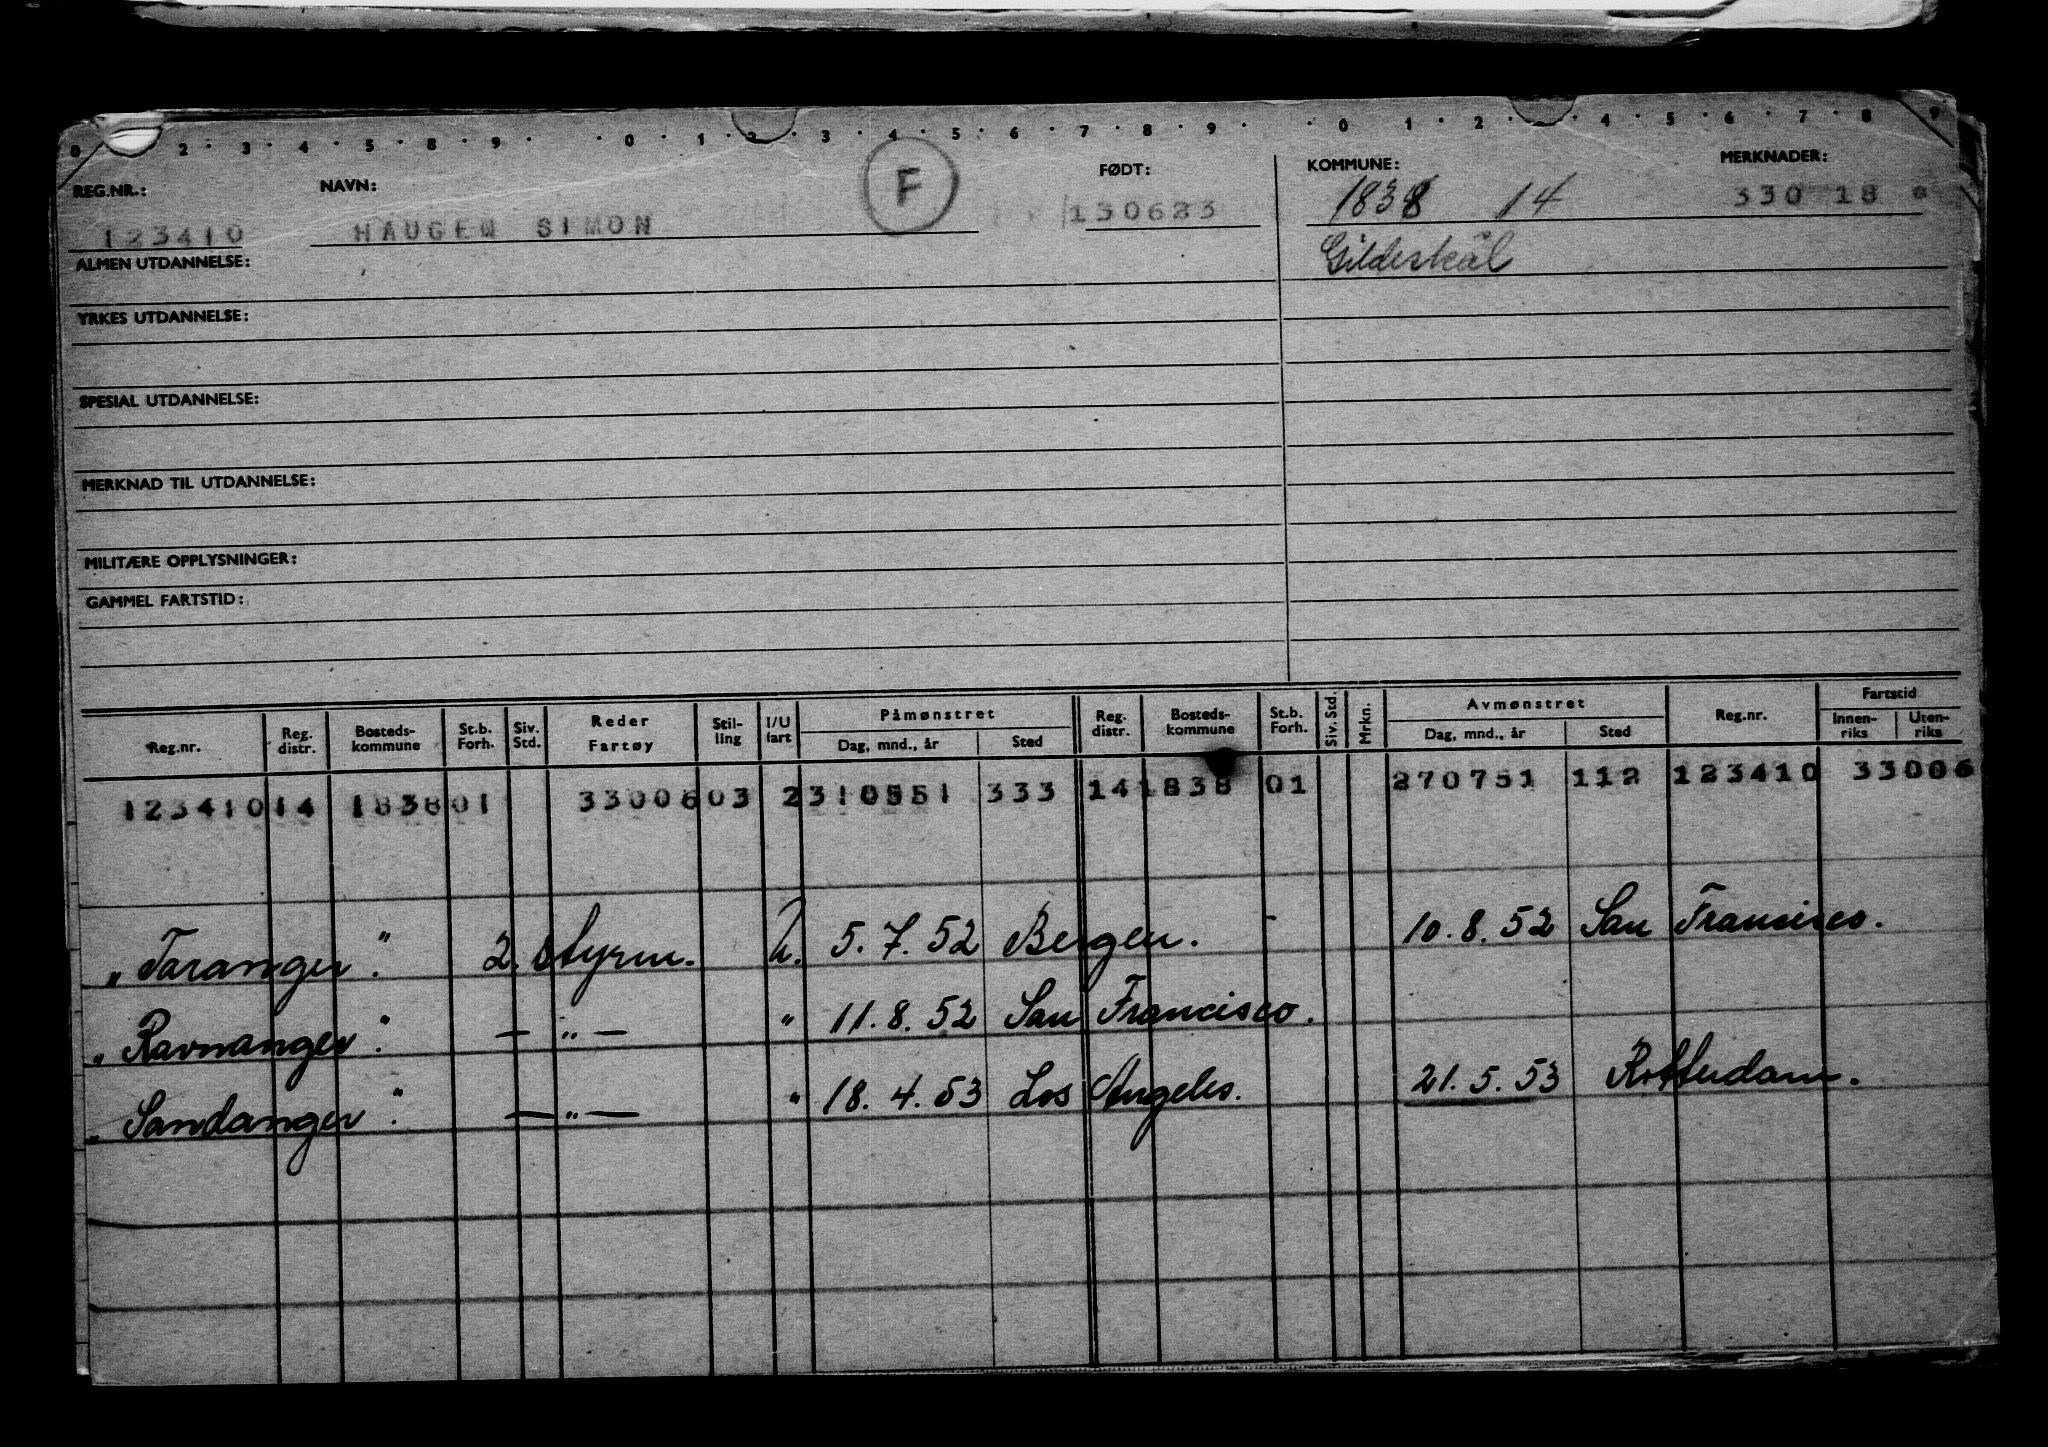 0 2 . 3 . 4 . 5 . 8 . 9 . . 0 . 1 . 2 . 3 . 4 . 5 . 6 . 7 . 8 . 9 . . 0 . 1 . 2 . . 4 . 5 . 6 . 7 . 8 . 9
REG.NR.: NAVN: F FØDT: KOMMUNE: MERKNADER:
123410 HAUGEN SIMON 130623 1838 14 330 18
ALMEN UTDANNELSE: Gildeskål
YRKES UTDANNELSE:
SPESIAL UTDANNELSE:
MERKNAD TIL UTDANNELSE:
MILITÆRE OPPLYSNINGER:
GAMMEL FARTSTID:
Reg.nr. Reg. distr. Bosteds-kommune St.b. Forh. Siv. Std. Reder Fartøy Stil-ling I/U fart Påmønstret Dag, mnd., år Sted Reg. distr. Bosteds-kommune St.b. Forh. Siv. Std. Mrkn. Avmønstret Dag, mnd., år Sted Reg.nr. Fartstid Innen-riks Uten-riks
123410 14 1838 01 33006 03 2 310551 333 14 1838 01 270751 112 123410 33006
„Taranger". 2. styrm. U. 5.7.52 Bergen. - 10.8.52 San Francisco.
„Ravnanger". — " — " 11.8.52 San Francisco.
„Sandanger". — " — " 18.4.53 Los Angeles. 21.5.53 Rotterdam.